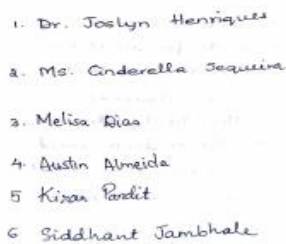 1. Dr. Joslyn Henriques
2. Ms. Cinderella Sequeira
3. Melisa Dias
4. Austin Almeida
5 Kiran Pandit
6 Siddhant Jambhale